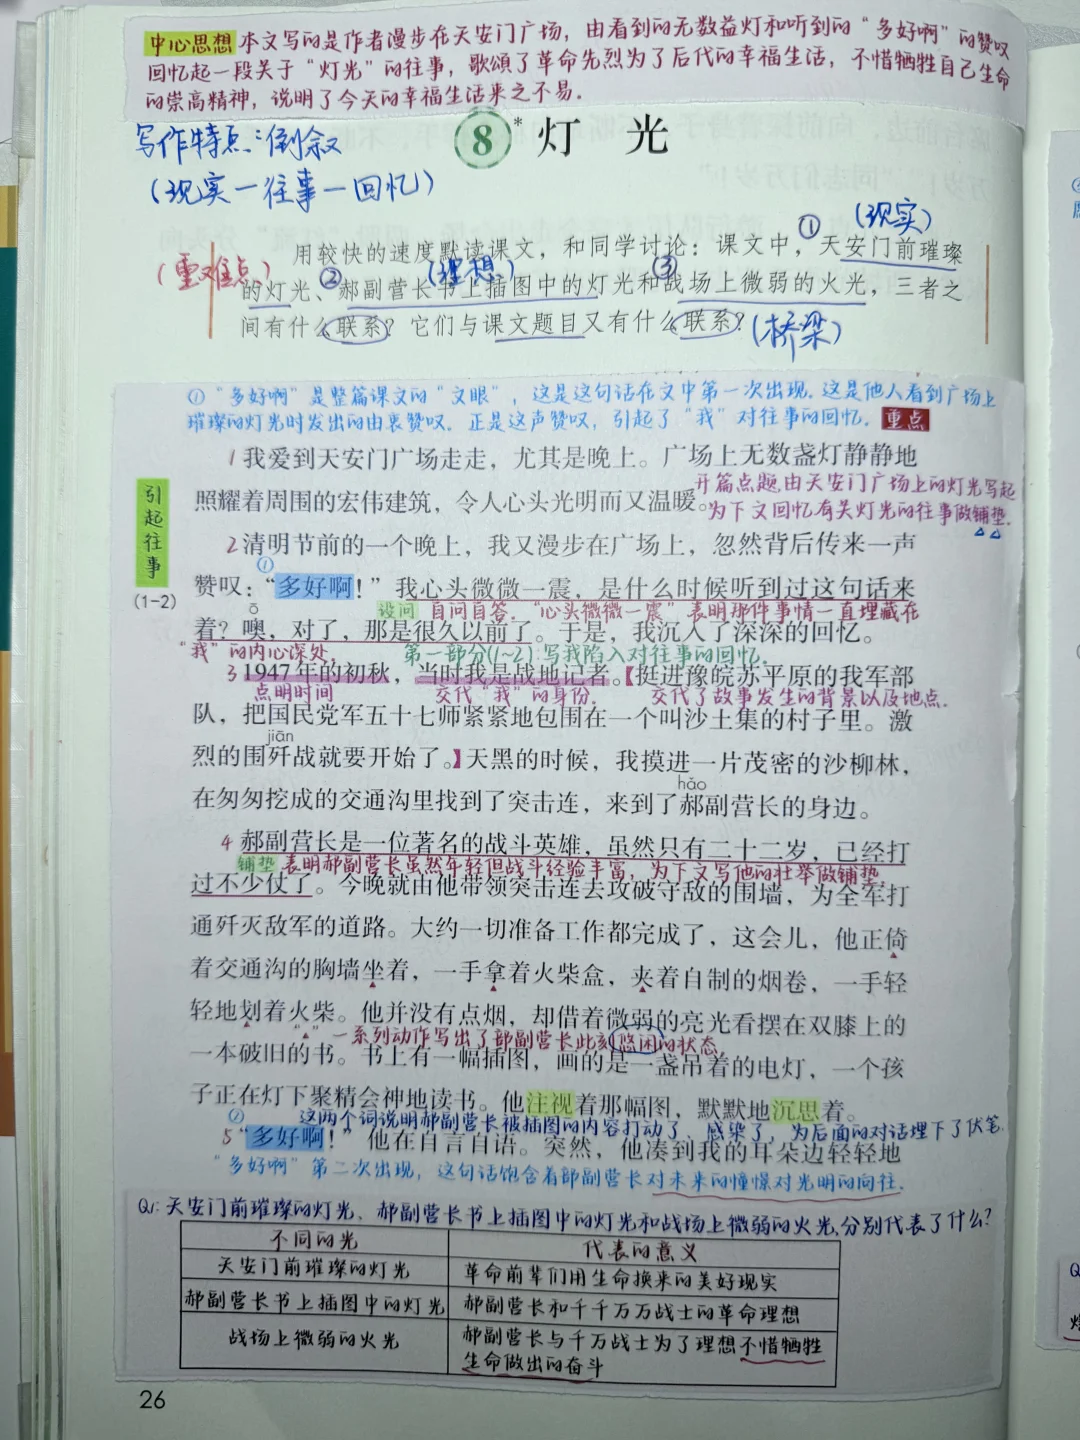 中心思想 本文写的是作者漫步在天安门广场，由看到的无数盏灯和听到的“多好啊”的赞叹
回忆起一段关于“灯光”的往事，歌颂了革命先烈为了后代的幸福生活，不惜牺牲自己生命
的崇高精神，说明了今天的幸福生活来之不易.
写作特点:倒叙
8* 灯 光
(现实一往事一回忆)
① (现实)
用较快的速度默读课文，和同学讨论：课文中，天安门前璀璨
(重难点) ② (理想) ③
的灯光、郝副营长书上插图中的灯光和战场上微弱的火光，三者之
间有什么联系？它们与课文题目又有什么联系？(桥梁)
①“多好啊”是整篇课文的“文眼”，这是这句话在文中第一次出现.这是他人看到广场上
璀璨的灯光时发出的由衷赞叹.正是这声赞叹，引起了“我”对往事的回忆. 重点
1我爱到天安门广场走走，尤其是晚上。广场上无数盏灯静静地
开篇点题.由天安门广场上的灯光写起
照耀着周围的宏伟建筑，令人心头光明而又温暖。
为下文回忆有关灯光的往事做铺垫.
引起往事
(1-2)
2清明节前的一个晚上，我又漫步在广场上，忽然背后传来一声
①
赞叹：“多好啊！”我心头微微一震，是什么时候听到过这句话来
设问 自问自答.“心头微微一震”表明那件事情一直埋藏在
ō
着？噢，对了，那是很久以前了。于是，我沉入了深深的回忆。
“我”的内心深处 第一部分(1~2):写我陷入对往事的回忆.
3 1947年的初秋，当时我是战地记者。【挺进豫皖苏平原的我军部
点明时间 交代“我”的身份. 交代了故事发生的背景以及地点.
队，把国民党军五十七师紧紧地包围在一个叫沙土集的村子里。激
jiān
烈的围歼战就要开始了。】天黑的时候，我摸进一片茂密的沙柳林，
hǎo
在匆匆挖成的交通沟里找到了突击连，来到了郝副营长的身边。
4 郝副营长是一位著名的战斗英雄，虽然只有二十二岁，已经打
铺垫 表明郝副营长虽然年轻但战斗经验丰富，为下文写他的壮举做铺垫.
过不少仗了。今晚就由他带领突击连去攻破守敌的围墙，为全军打
通歼灭敌军的道路。大约一切准备工作都完成了，这会儿，他正倚
着交通沟的胸墙坐着，一手拿着火柴盒，夹着自制的烟卷，一手轻
轻地划着火柴。他并没有点烟，却借着微弱的亮光看摆在双膝上的
“▲”一系列动作写出了郝副营长此刻悠闲的状态.
一本破旧的书。书上有一幅插图，画的是一盏吊着的电灯，一个孩
子正在灯下聚精会神地读书。他注视着那幅图，默默地沉思着。
② 这两个词说明郝副营长被插图的内容打动了，感染了，为后面的对话埋下了伏笔.
5“多好啊！”他在自言自语。突然，他凑到我的耳朵边轻轻地
“多好啊”第二次出现，这句话饱含着郝副营长对未来的憧憬对光明的向往.
Q1:天安门前璀璨的灯光、郝副营长书上插图中的灯光和战场上微弱的火光,分别代表了什么?
不同的光 代表的意义
天安门前璀璨的灯光 革命前辈们用生命换来的美好现实
郝副营长书上插图中的灯光 郝副营长和千千万万战士的革命理想
战场上微弱的火光 郝副营长与千万战士为了理想不惜牺牲
生命做出的奋斗
26